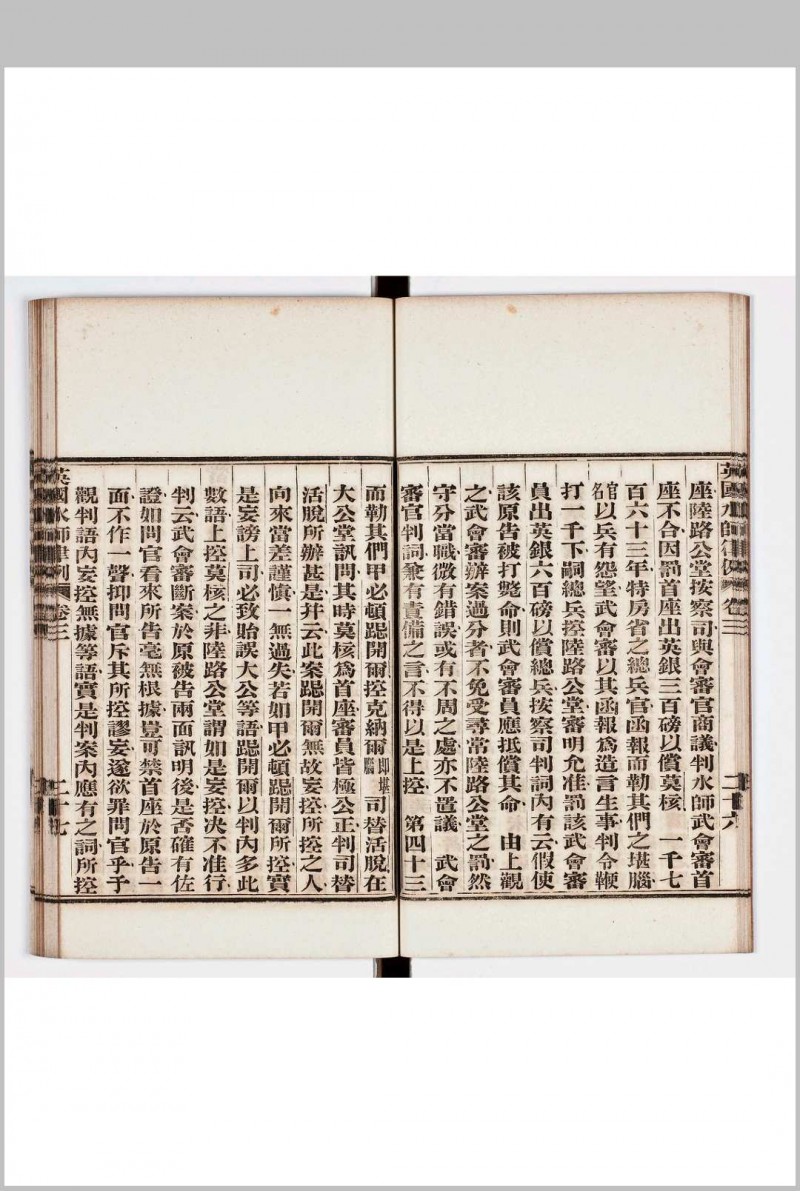 英國水師律例 卷三 二十六
座陸路公堂按察司與會審官商議判水師武會審首
座不合因罰首座出英銀三百磅以償莫核 一千七
百六十三年特房省之總兵官函報而勒其們之堪腦
官名以兵有怨望武會審以其函報爲造言生事判令鞭
打一千下嗣總兵控陸路公堂審明允准罰該武會審
員出英銀六百磅以償總兵按察司判詞內有云假使
該原告被打斃命則武會審員應抵償其命 由上觀
之武會審辦案過分者不免受尋常陸路公堂之罰然
守分當職微有錯誤或有不周之處亦不置議 武會
審官判詞兼有責備之言不得以是上控 第四十三
而勒其們甲必頓跽開爾控克納爾即堪腦司替活脫在
大公堂訊問其時莫核爲首座審員皆極公正判司替
活脫所辦甚是并云此案跽開爾無故妄控所控之人
向來當差謹慎一無過失若如甲必頓跽開爾所控實
是妄謗上司必致貽誤大公等語跽開爾以判內多此
數語上控莫核之非陸路公堂謂如是妄控決不准行
判云武會審斷案於原被告兩面訊明後是否確有佐
證如問官看來所告毫無根據豈可禁首座於原告一
面不作一聲抑問官斥其所控謬妄遂欲罪問官乎予
觀判語內妄控無據等語實是判案內應有之詞所控
英國水師律例 卷三 二十七